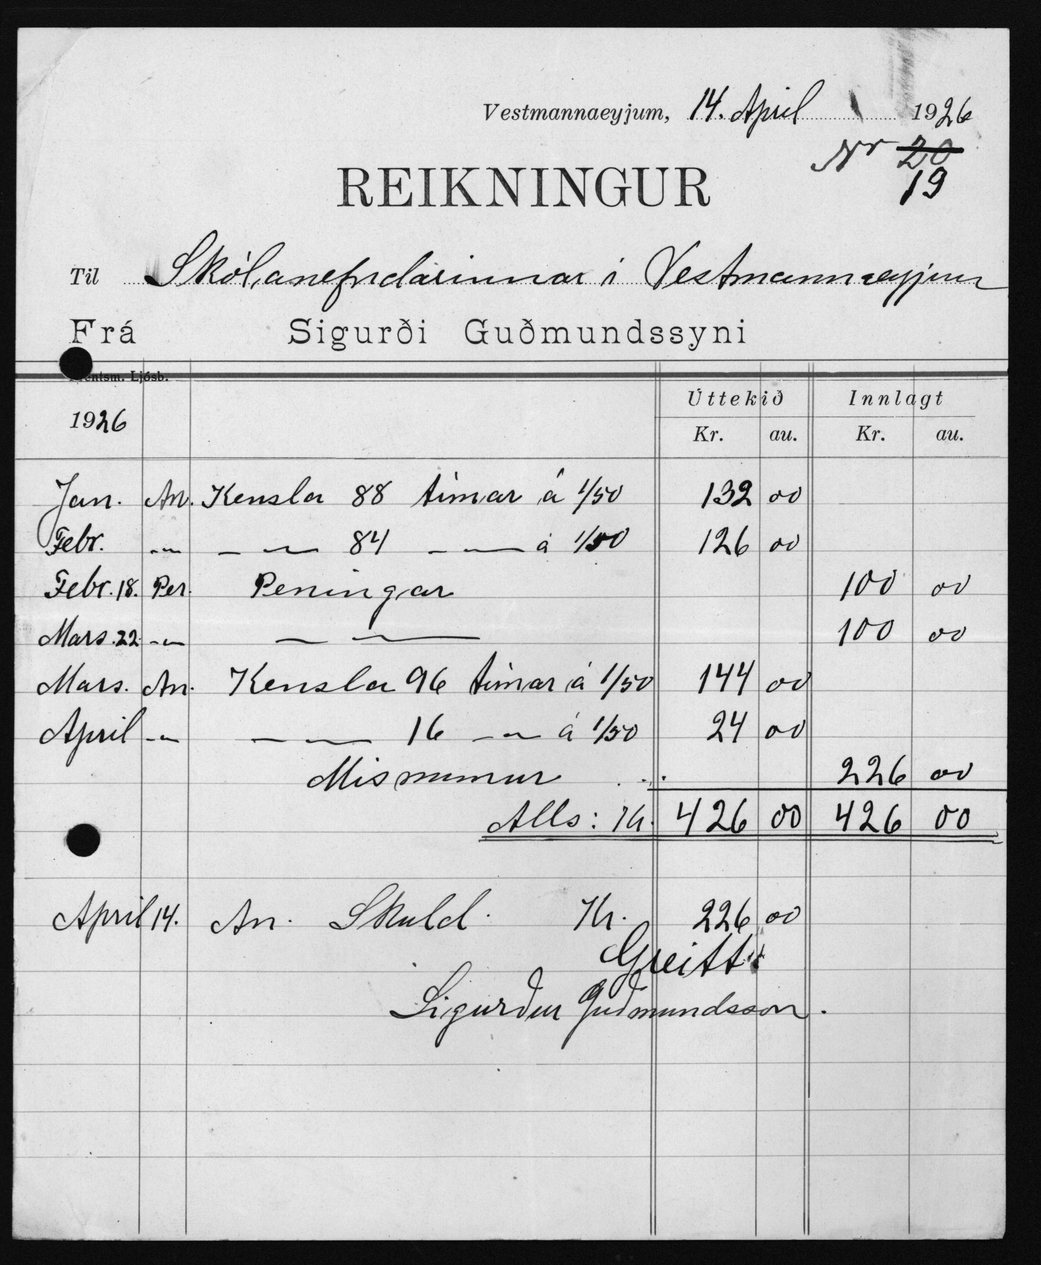 Vestmannaeyjum, 14. April 1926
Nr 20
19
REIKNINGUR
Til Skólanefndarinnar í Vestmannaeyjum
Frá Sigurði Guðmundssyni
Prentsm. Ljósb.
1926 Úttekið Innlagt
Kr. au. Kr. au.
Jan. An. Kensla 88 tímar á 1/50 132 00
Febr. -„- — „ — 84 — „ — á 1/50 126 00
Febr. 18. Per. Peningar 100 00
Mars. 22 -„- — „ — 100 00
Mars. An. Kensla 96 tímar á 1/50 144 00
April -„- — „ — 16 — „ — á 1/50 24 00
Mismunur ... 226 00
Alls: Kr. 426 00 426 00
April 14. An. Skuld. Kr. 226 00
Greitt
Sigurður Guðmundsson.